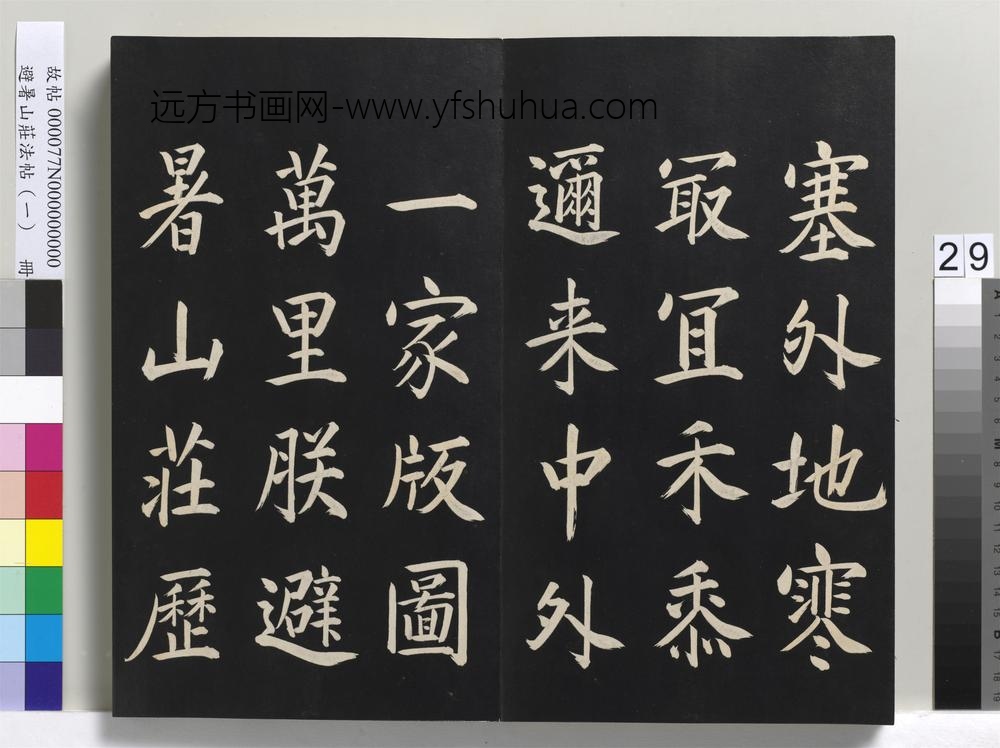 塞外地寒
最宜禾黍
邇来中外
一家版圖
萬里朕避
暑山莊歷
远方书画网-www.yfshuhua.com
故帖 000077N000000000
避暑山莊法帖（一） 冊
29